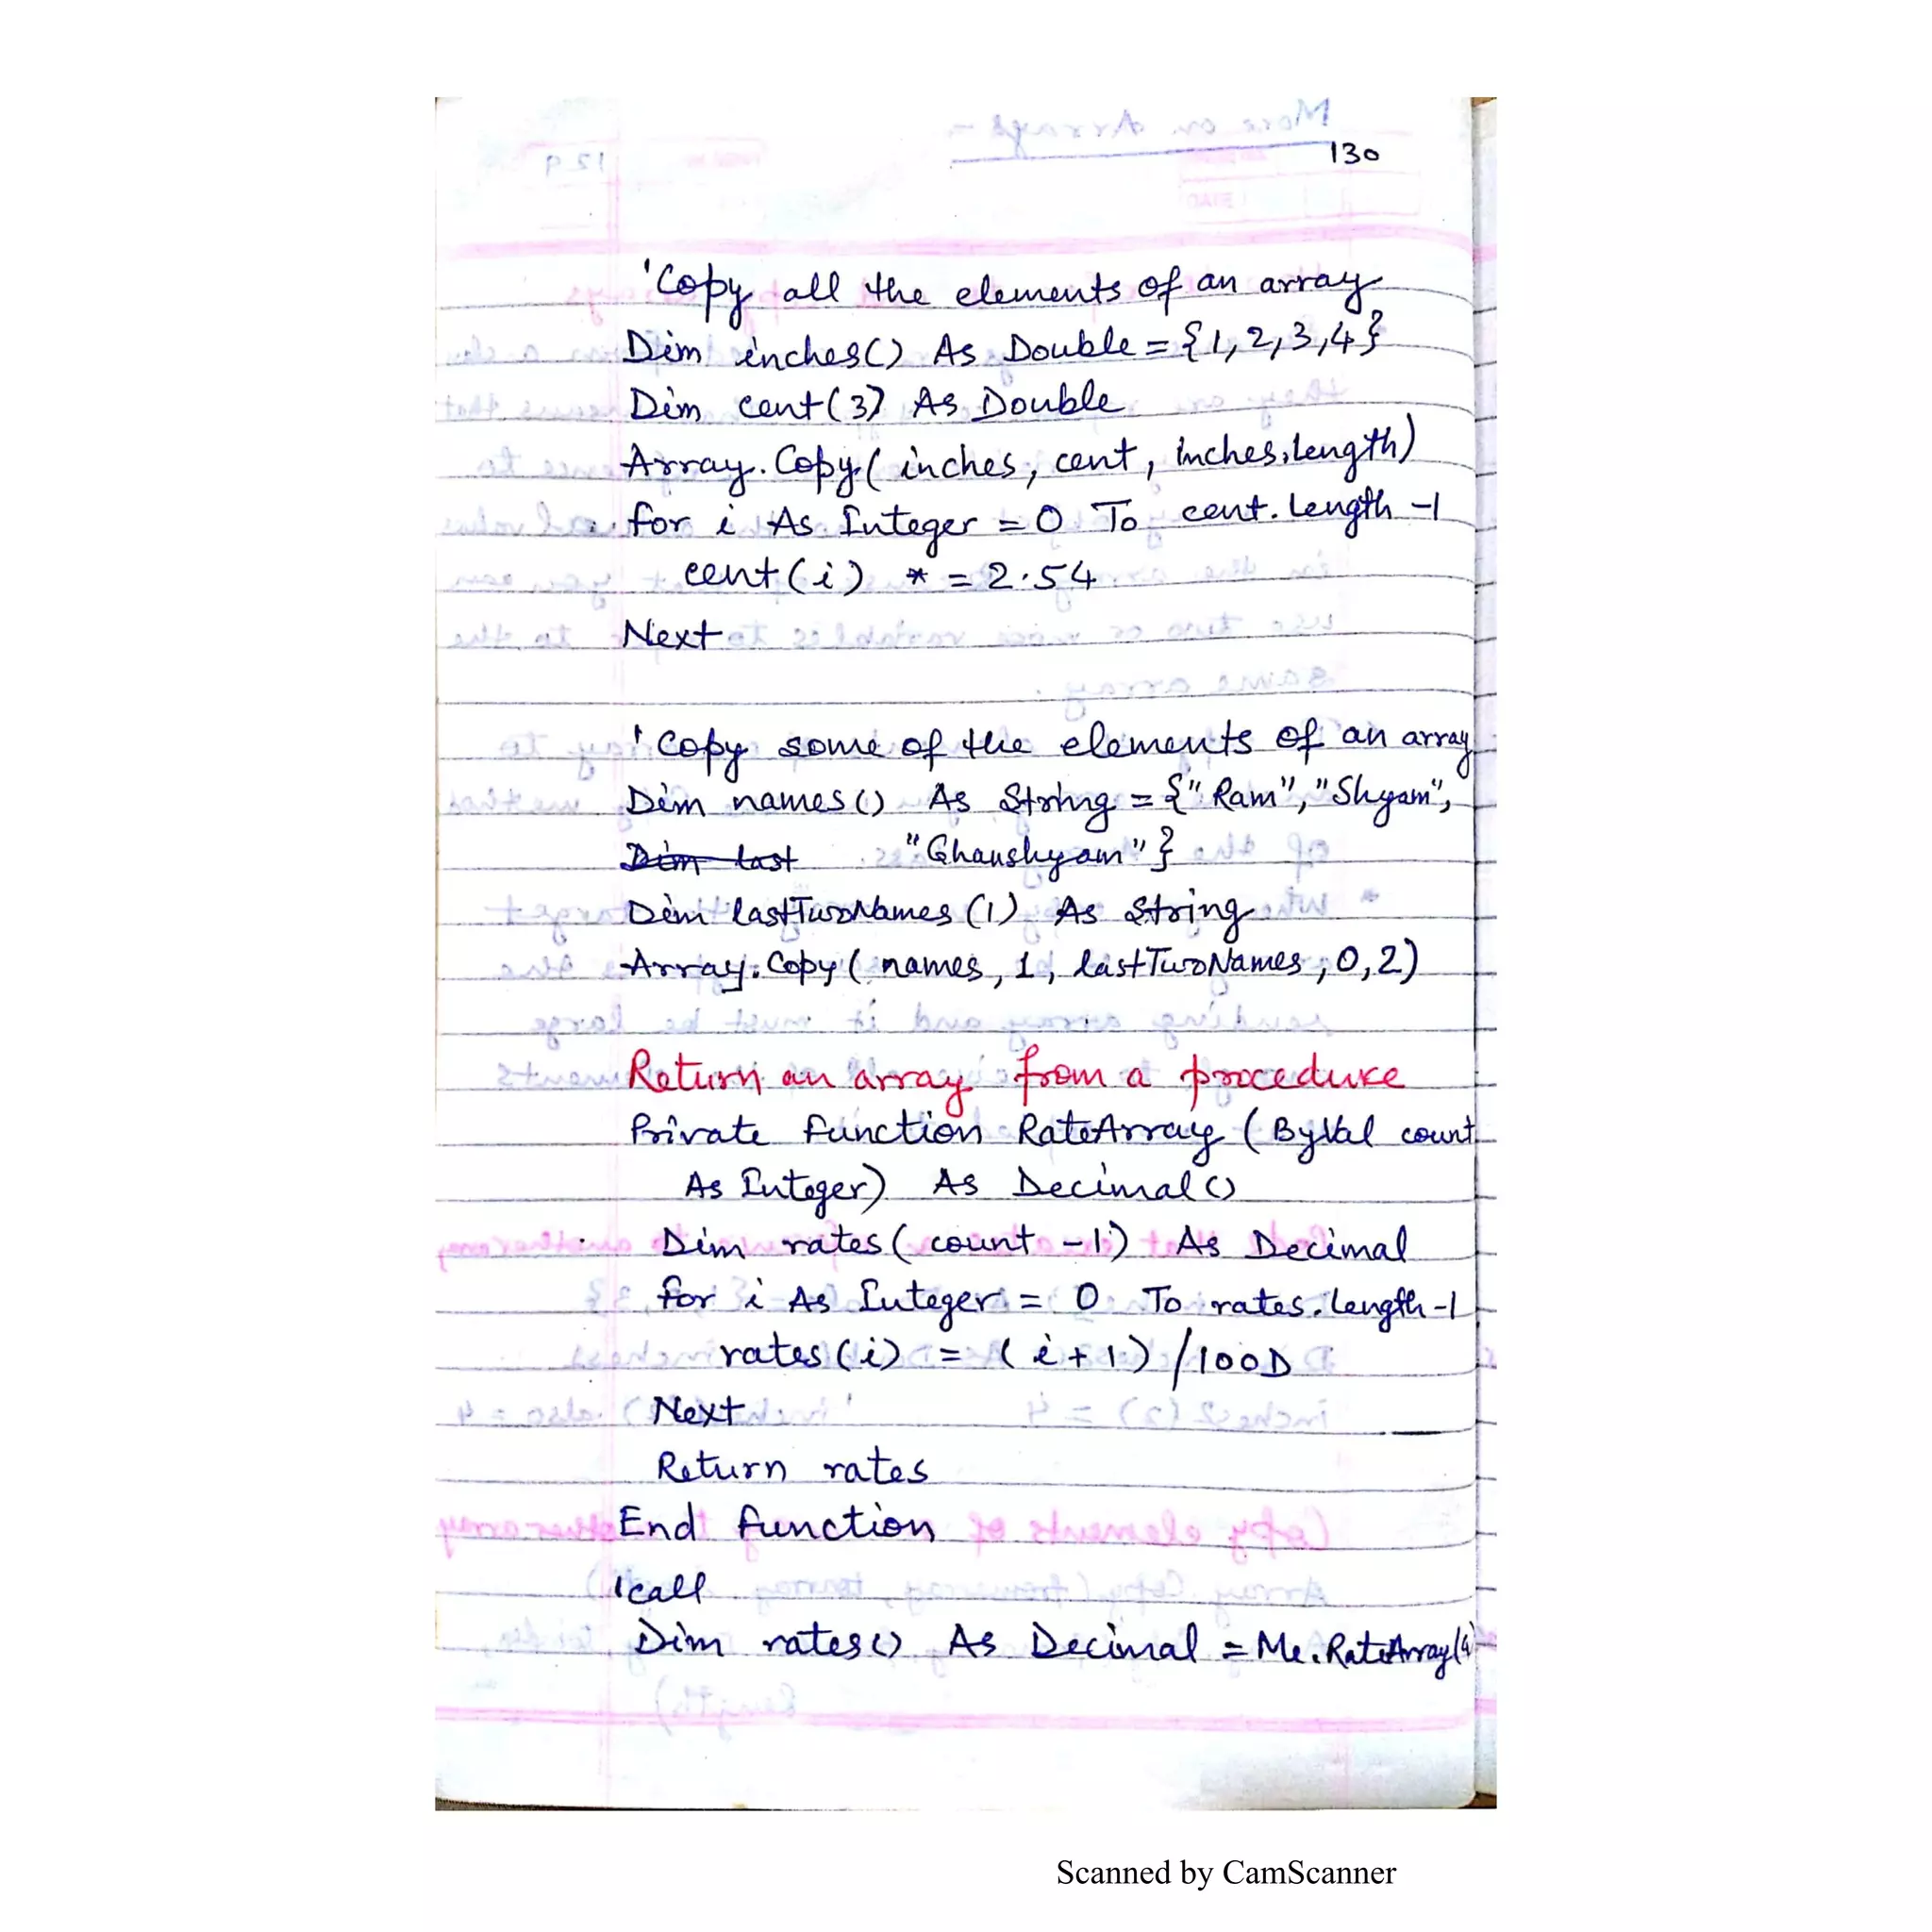 130
'Copy all the elements of an array
Dim inches() As Double = {1, 2, 3, 4}
Dim cent(3) As Double
Array.Copy( inches, cent, inches.length)
for i As Integer = 0 To cent.length -1
cent(i) * = 2.54
Next
'Copy some of the elements of an array
Dim names() As String = {"Ram", "Shyam",
Dim last "Ghanshyam"}
Dim lastTwoNames (1) As String
Array.Copy( names, 1, lastTwoNames, 0, 2)
Return an array from a procedure
Private function RateArray ( ByVal count
As Integer) As Decimal()
Dim rates( count -1) As Decimal
for i As Integer = 0 To rates.length -1
rates(i) = ( i + 1) /100D
Next
Return rates
End function
'call
Dim rates() As Decimal = Me.RateArray(4)
Scanned by CamScanner